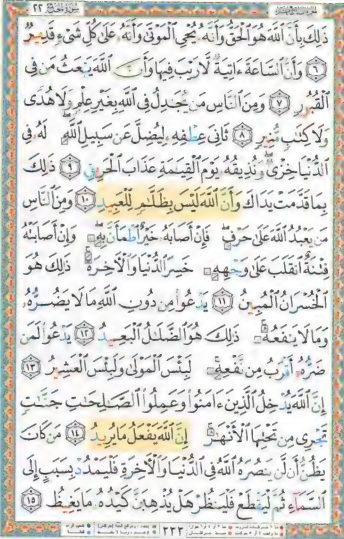 ذَٰلِكَ بِأَنَّ ٱللَّهَ هُوَ ٱلْحَقُّ وَأَنَّهُۥ يُحْىِ ٱلْمَوْتَىٰ وَأَنَّهُۥ عَلَىٰ كُلِّ شَىْءٍ قَدِيرٌ
٦ وَأَنَّ ٱلسَّاعَةَ ءَاتِيَةٌ لَّا رَيْبَ فِيهَا وَأَنَّ ٱللَّهَ يَبْعَثُ مَن فِى
ٱلْقُبُورِ ٧ وَمِنَ ٱلنَّاسِ مَن يُجَٰدِلُ فِى ٱللَّهِ بِغَيْرِ عِلْمٍ وَلَا هُدًى
وَلَا كِتَٰبٍ مُّنِيرٍ ٨ ثَانِىَ عِطْفِهِۦ لِيُضِلَّ عَن سَبِيلِ ٱللَّهِ لَهُۥ فِى
ٱلدُّنْيَا خِزْىٌ وَنُذِيقُهُۥ يَوْمَ ٱلْقِيَٰمَةِ عَذَابَ ٱلْحَرِيقِ ٩ ذَٰلِكَ
بِمَا قَدَّمَتْ يَدَاكَ وَأَنَّ ٱللَّهَ لَيْسَ بِظَلَّٰمٍ لِّلْعَبِيدِ ١٠ وَمِنَ ٱلنَّاسِ
مَن يَعْبُدُ ٱللَّهَ عَلَىٰ حَرْفٍ فَإِنْ أَصَابَهُۥ خَيْرٌ ٱطْمَأَنَّ بِهِۦ وَإِنْ أَصَابَتْهُ
فِتْنَةٌ ٱنقَلَبَ عَلَىٰ وَجْهِهِۦ خَسِرَ ٱلدُّنْيَا وَٱلْءَاخِرَةَ ذَٰلِكَ هُوَ
ٱلْخُسْرَانُ ٱلْمُبِينُ ١١ يَدْعُوا۟ مِن دُونِ ٱللَّهِ مَا لَا يَضُرُّهُۥ
وَمَا لَا يَنفَعُهُۥ ذَٰلِكَ هُوَ ٱلضَّلَٰلُ ٱلْبَعِيدُ ١٢ يَدْعُوا۟ لَمَن
ضَرُّهُۥٓ أَقْرَبُ مِن نَّفْعِهِۦ لَبِئْسَ ٱلْمَوْلَىٰ وَلَبِئْسَ ٱلْعَشِيرُ ١٣
إِنَّ ٱللَّهَ يُدْخِلُ ٱلَّذِينَ ءَامَنُوا۟ وَعَمِلُوا۟ ٱلصَّٰلِحَٰتِ جَنَّٰتٍ
تَجْرِى مِن تَحْتِهَا ٱلْأَنْهَٰرُ إِنَّ ٱللَّهَ يَفْعَلُ مَا يُرِيدُ ١٤ مَن كَانَ
يَظُنُّ أَن لَّن يَنصُرَهُ ٱللَّهُ فِى ٱلدُّنْيَا وَٱلْءَاخِرَةِ فَلْيَمْدُدْ بِسَبَبٍ إِلَى
ٱلسَّمَآءِ ثُمَّ لْيَقْطَعْ فَلْيَنظُرْ هَلْ يُذْهِبَنَّ كَيْدُهُۥ مَا يَغِيظُ ١٥
٣٣٣